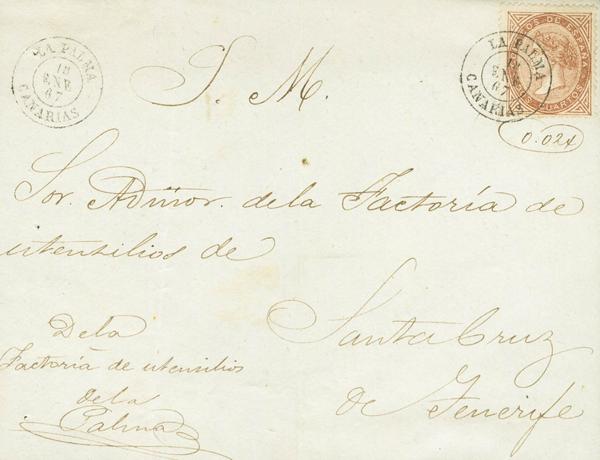 LA PALMA
18
ENE
67
CANARIAS
S. M.
LA PALMA
18
ENE
67
CANARIAS
OS DE ESPAÑA
CUARTOS
0.024
Sor. Admor. de la Factoría de
utensilios de
Santa Cruz
de Tenerife
De la
Factoría de utensilio
de la
Palma